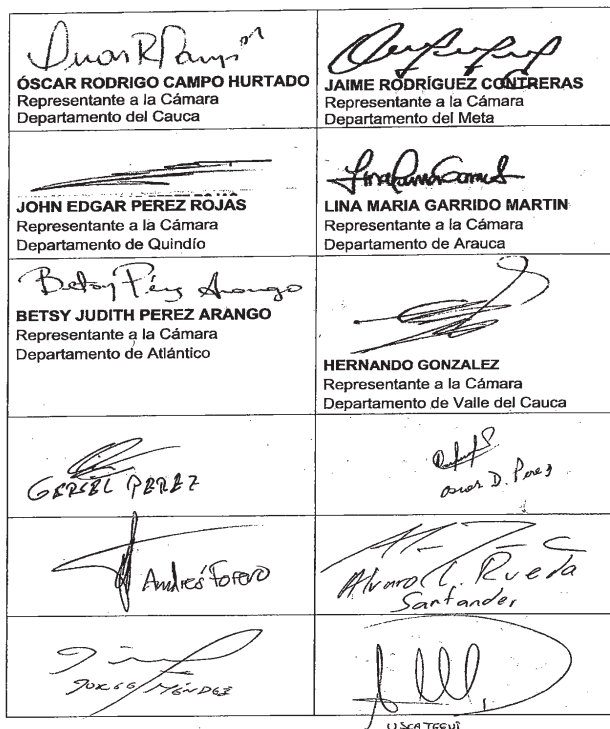 ÓSCAR RODRIGO CAMPO HURTADO
Representante a la Cámara
Departamento del Cauca
JAIME RODRÍGUEZ CONTRERAS
Representante a la Cámara
Departamento del Meta
JOHN EDGAR PEREZ ROJAS
Representante a la Cámara
Departamento de Quindío
LINA MARIA GARRIDO MARTIN
Representante a la Cámara
Departamento de Arauca
Betsy Pérez Arango
BETSY JUDITH PEREZ ARANGO
Representante a la Cámara
Departamento de Atlántico
HERNANDO GONZALEZ
Representante a la Cámara
Departamento de Valle del Cauca
GERSEL PEREZ
Oscar D. Perez
Andrés Forero
Alvaro L. Rueda
Santander
JORGE MÉNDEZ
USCATEGUI